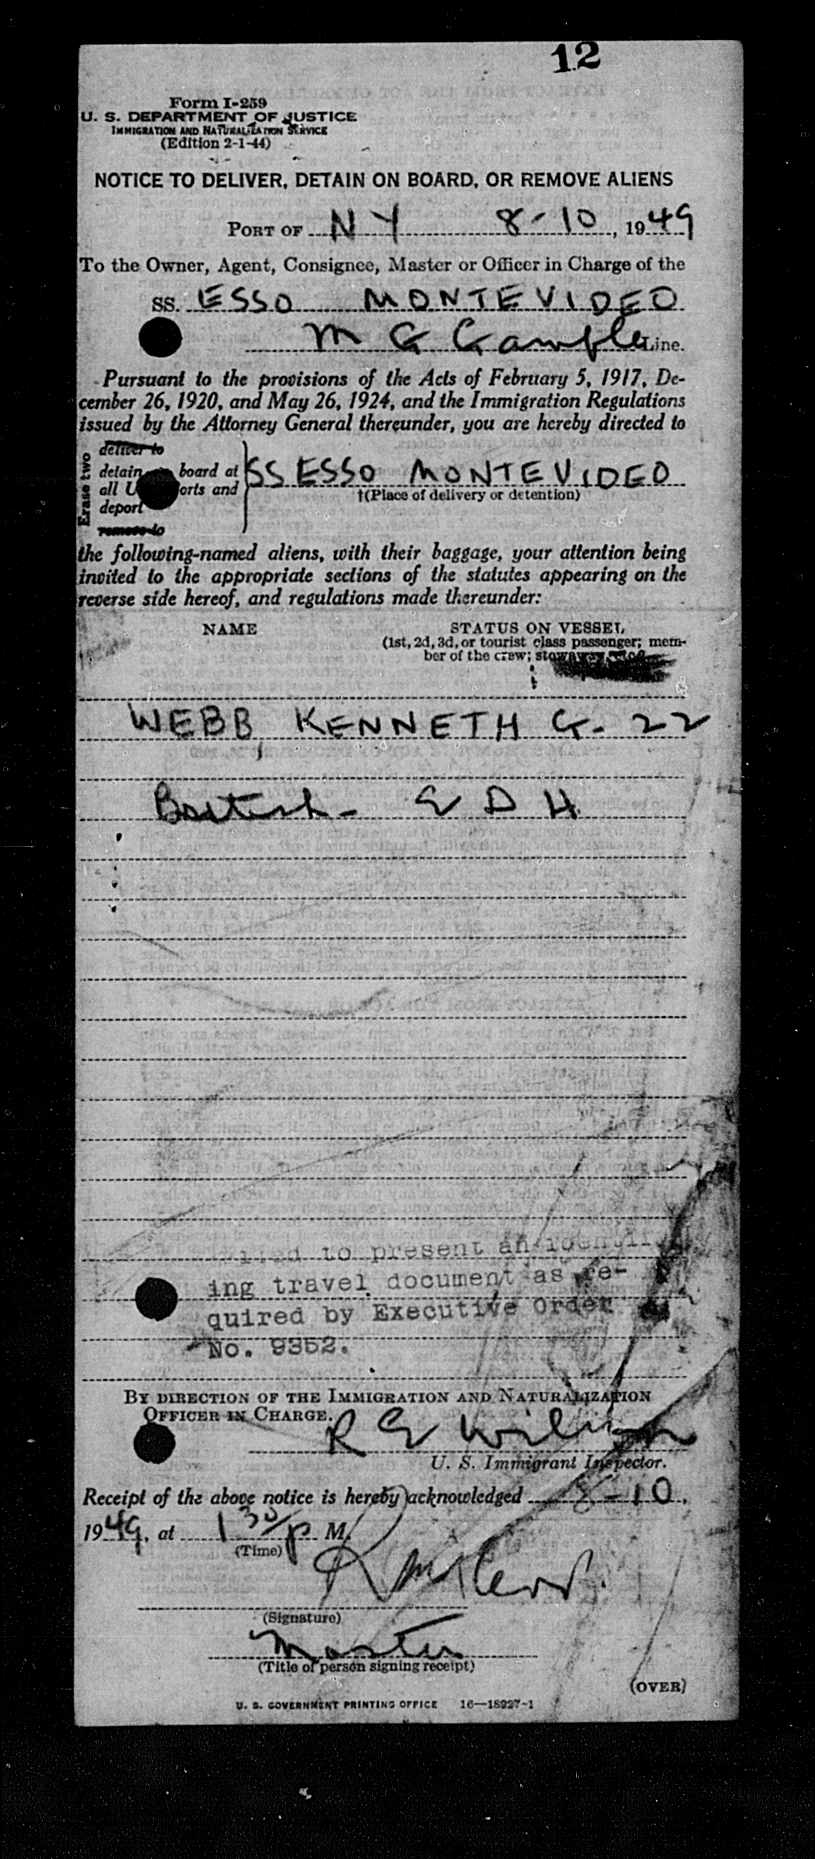 12
Form I-259
U. S. DEPARTMENT OF JUSTICE
IMMIGRATION AND NATURALIZATION SERVICE
(Edition 2-1-44)
NOTICE TO DELIVER, DETAIN ON BOARD, OR REMOVE ALIENS
PORT OF NY 8-10, 1949
To the Owner, Agent, Consignee, Master or Officer in Charge of the
SS. ESSO MONTEVIDEO
M G Gamble Line.
Pursuant to the provisions of the Acts of February 5, 1917, De-
cember 26, 1920, and May 26, 1924, and the Immigration Regulations
issued by the Attorney General thereunder, you are hereby directed to
Erase two
deliver to
detain board at
all orts and
deport
remove to
SS ESSO MONTEVIDEO
†(Place of delivery or detention)
the following-named aliens, with their baggage, your attention being
invited to the appropriate sections of the statutes appearing on the
reverse side hereof, and regulations made thereunder:
NAME STATUS ON VESSEL
(1st, 2d, 3d, or tourist class passenger; mem-
ber of the crew; stowaway,
WEBB, KENNETH G. 22
British - E D H
to present an identify
ing travel document as re-
quired by Executive Order
No. 9352.
BY DIRECTION OF THE IMMIGRATION AND NATURALIZATION
OFFICER IN CHARGE.
R E
U. S. Immigrant Inspector.
Receipt of the above notice is hereby acknowledged 8-10,
1949, at 1 30/p M.
(Time)
(Signature)
Master
(Title of person signing receipt)
(OVER)
U. S. GOVERNMENT PRINTING OFFICE 16—18927-1